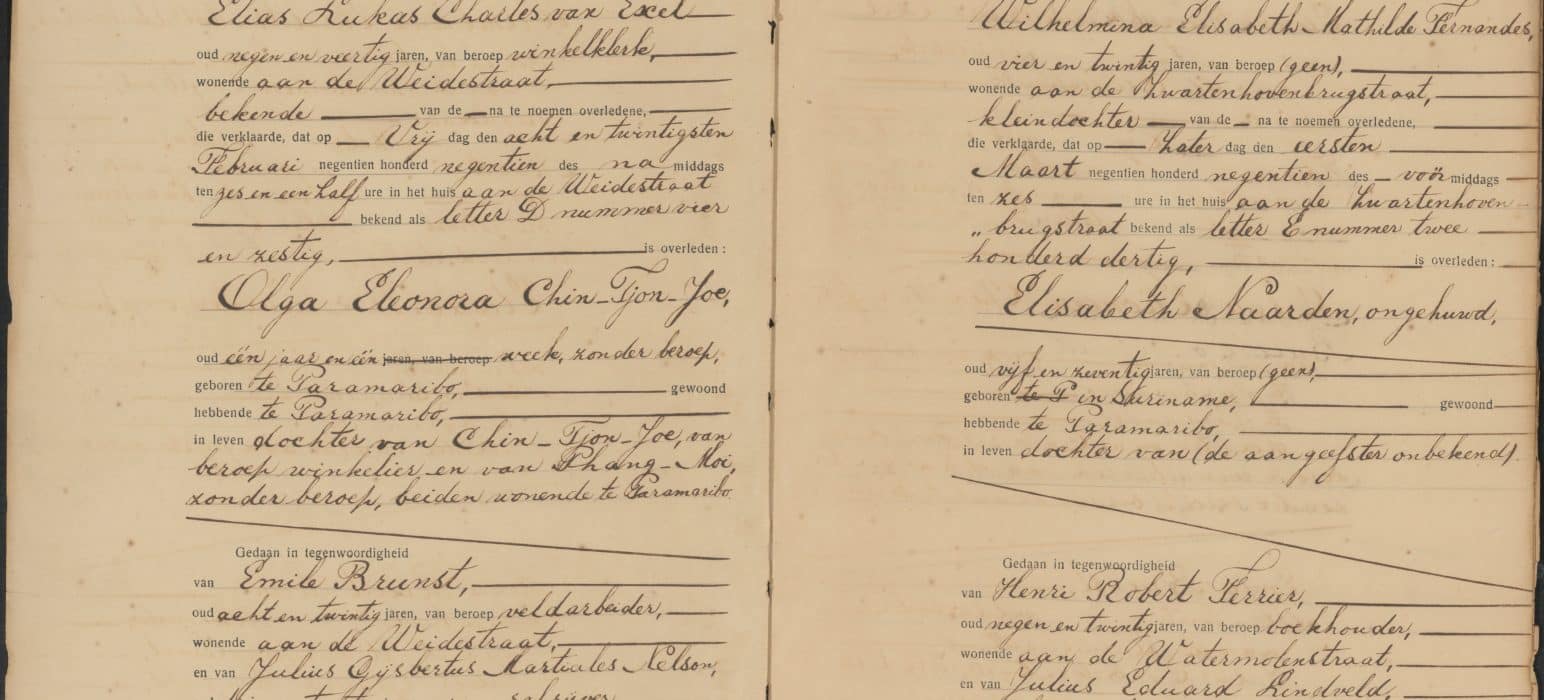 Elias Lukas Charles van Exel
oud negen en veertig jaren, van beroep winkelklerk,
wonende aan de Weidestraat,
bekende van de na te noemen overledene,
die verklaarde, dat op Vrij dag den acht en twintigsten
Februari negentien honderd negentien des na middags
ten zes en een half ure in het huis aan de Weidestraat
bekend als letter D nummer vier
en zestig, is overleden:
Olga Eleonora Chin-Tjon-Joe,
oud één jaar en één jaren, van beroep week, zonder beroep,
geboren te Paramaribo, gewoond
hebbende te Paramaribo,
in leven dochter van Chin-Tjon-Joe, van
beroep winkelier en van Phang-Moi,
zonder beroep, beiden wonende te Paramaribo.
Gedaan in tegenwoordigheid
van Emile Brunst,
oud acht en twintig jaren, van beroep veldarbeider,
wonende aan de Weidestraat,
en van Julius Gijsbertus Martiales Nelson,
schrijver
Wilhelmina Elisabeth Mathilde Fernandes,
oud vier en twintig jaren, van beroep (geen),
wonende aan de Zwartenhovenbrugstraat,
kleindochter van de na te noemen overledene,
die verklaarde, dat op Zater dag den eersten
Maart negentien honderd negentien des voor middags
ten zes ure in het huis aan de Zwartenhoven-
„brugstraat bekend als letter E nummer twee
honderd dertig, is overleden:
Elisabeth Naarden, ongehuwd,
oud vijf en zeventig jaren, van beroep (geen),
geboren te P in Suriname, gewoond
hebbende te Paramaribo,
in leven dochter van (de aangeefster onbekend).
Gedaan in tegenwoordigheid
van Henri Robert Ferrier,
oud negen en twintig jaren, van beroep boekhouder,
wonende aan de Watermolenstraat,
en van Julius Eduard Lindveld,